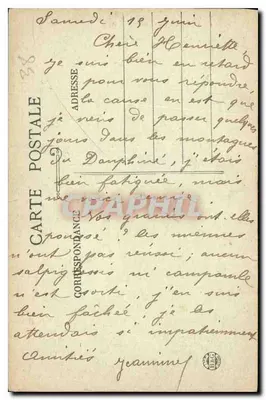 Samedi 19 Juin
Chère Henriette,
je suis bien en retard
pour vous répondre,
la cause en est que
je viens de passer quelques
jours dans les montagnes
du Dauphiné, j'étais
bien fatiguée, mais
me
Vos graines ont-elles
poussé? les miennes
n'ont pas réussi; aucun
salpiglossis ni campanule
n'est sorti, j'en suis
bien fâchée, je les
attendais si impatiemment
Amitiés
Jeannine
CARTE POSTALE
ADRESSE
CORRESPONDANCE
38
CPARAMA